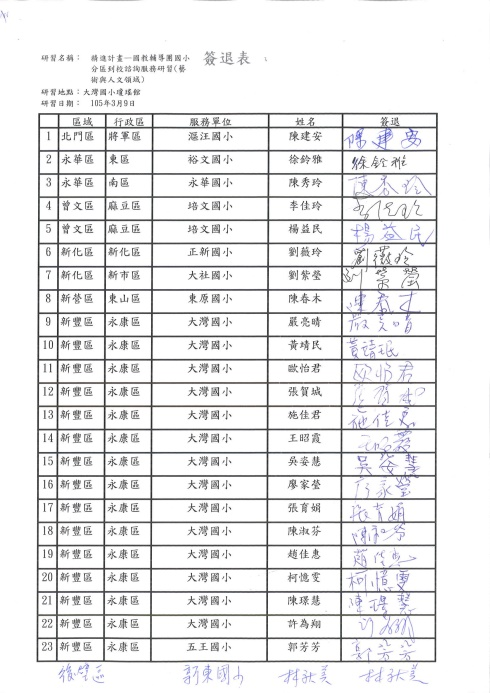 研習名稱: 精進計畫—國教輔導團國小 簽退表
分區到校諮詢服務研習(藝
術與人文領域)
研習地點:大灣國小瓊瑤館
研習日期: 105年3月9日
區域 行政區 服務單位 姓名 簽退
1 北門區 將軍區 漚汪國小 陳建安 陳建安
2 永華區 東區 裕文國小 徐鈴雅 徐鈴雅
3 永華區 南區 永華國小 陳秀玲 陳秀玲
4 曾文區 麻豆區 培文國小 李佳玲 李佳玲
5 曾文區 麻豆區 培文國小 楊益民 楊益民
6 新化區 新化區 正新國小 劉薇玲 劉薇玲
7 新化區 新市區 大社國小 劉紫瑩 劉紫瑩
8 新營區 東山區 東原國小 陳春木 陳春木
9 新豐區 永康區 大灣國小 嚴亮晴 嚴亮晴
10 新豐區 永康區 大灣國小 黃靖民 黃靖珉
11 新豐區 永康區 大灣國小 歐怡君 歐怡君
12 新豐區 永康區 大灣國小 張賀城
13 新豐區 永康區 大灣國小 施佳君 施佳君
14 新豐區 永康區 大灣國小 王昭霞 王昭霞
15 新豐區 永康區 大灣國小 吳姿慧 吳姿慧
16 新豐區 永康區 大灣國小 廖家瑩 廖家瑩
17 新豐區 永康區 大灣國小 張育娟 張育娟
18 新豐區 永康區 大灣國小 陳淑芬 陳淑芬
19 新豐區 永康區 大灣國小 趙佳惠 趙佳惠
20 新豐區 永康區 大灣國小 柯憶雯 柯憶雯
21 新豐區 永康區 大灣國小 陳璟慧 陳璟慧
22 新豐區 永康區 大灣國小 許為翔 許為翔
23 新豐區 永康區 五王國小 郭芳芳 郭芳芳
後壁區 新東國小 林秋美 林秋美